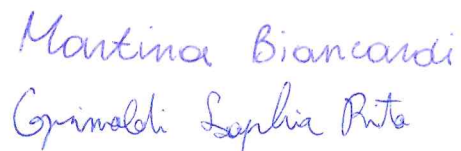 Martina Biancardi
Grimaldi Sophia Rita